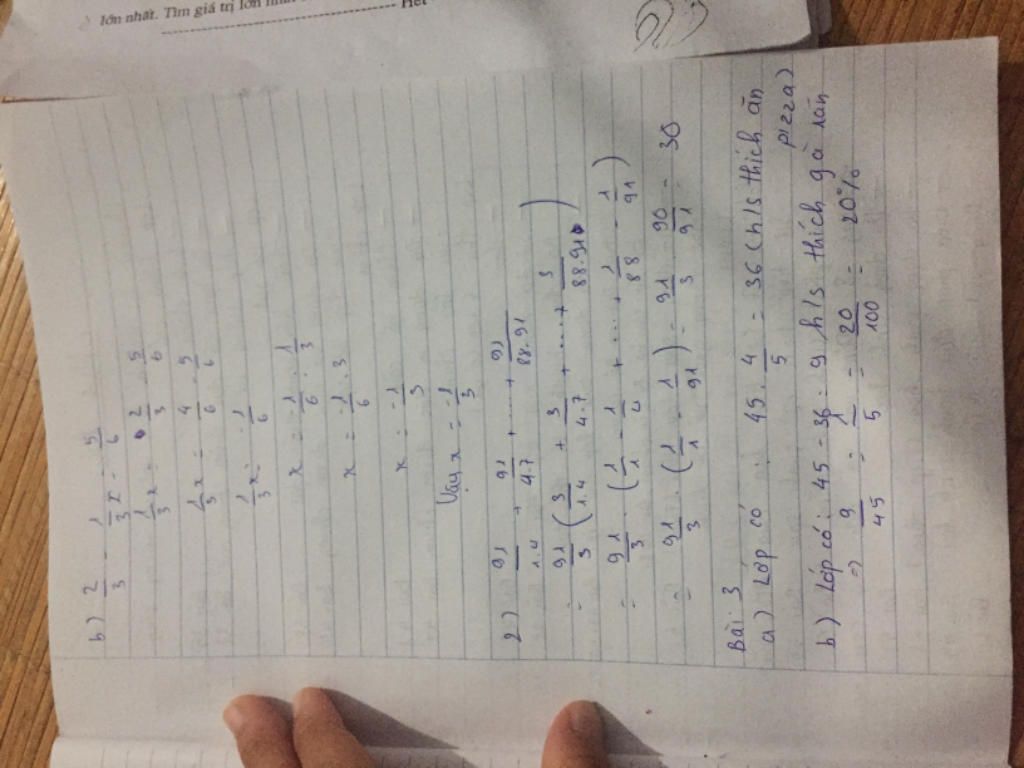 lớn nhất. Tìm giá trị lớn nhất
Hết
b) 2/3 - 1/3 x = 5/6
1/3 x = 2/3 - 5/6
1/3 x = 4/6 - 5/6
1/3 x = -1/6
x = -1/6 : 1/3
x = -1/6 . 3
x = -1/3
Vậy x = -1/3
2) 91/1.4 + 91/4.7 + ..... + 91/88.91
= 91/3 (3/1.4 + 3/4.7 + ..... + 3/88.91)
= 91/3 . (1/1 - 1/4 + ..... + 1/88 - 1/91)
= 91/3 . (1/1 - 1/91) = 91/3 . 90/91 = 30
Bài 3
a) Lớp có : 45 . 4/5 = 36 (h/s thích ăn
pizza)
b) Lớp có : 45 - 36 = 9 h/s thích gà rán
=> 9/45 = 1/5 = 20/100 = 20%